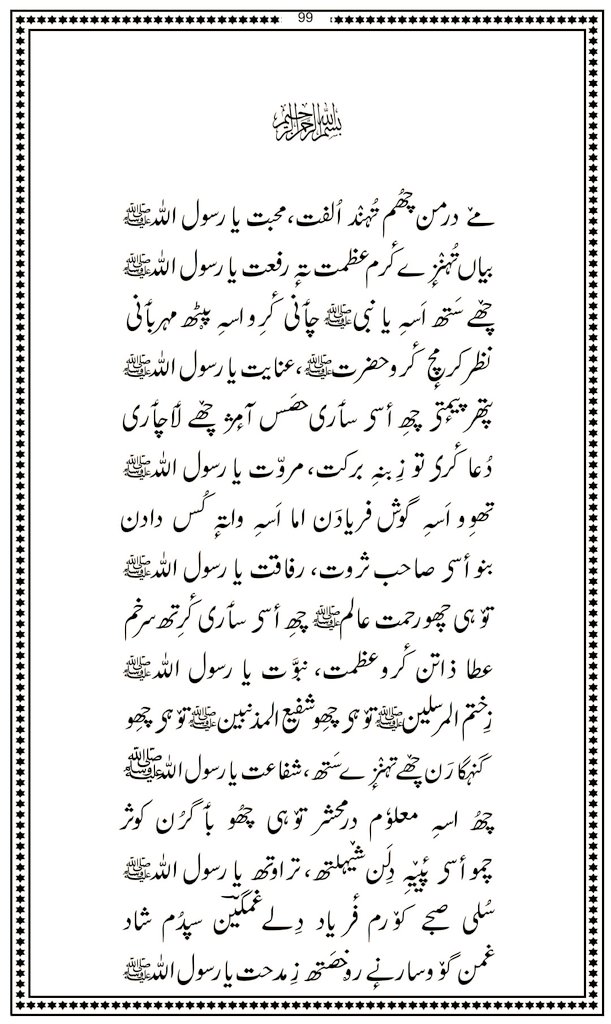 99
بسم اللہ الرحمن الرحیم
مےٚ درمن چھُم تُہنٛد اُلفت، محبت یا رسول اللہ ﷺ
بیاں تُہنٛزِ ے کٔرم عظمت تہٕ رفعت یا رسول اللہ ﷺ
چھےٚ سَتھ اَسہِ یا نبی ﷺ چأنی کٔرِو اسہِ پؠٹھ مہربأنی
نظر کرمٕچ کٔرو حضرت ﷺ، عنایت یا رسول اللہ ﷺ
پتھر پیمٕتۍ چھِ أسۍ سأری حصَس آمٕژ چھےٚ لأچأری
دُعا کٔرۍ تو زِ بنہِ برکت، مروّت یا رسول اللہ ﷺ
تھوو اَسہِ گوش فریادَن اما اَسہِ واتہِ کُس دادن
بنو أسۍ صاحب ثروت، رفاقت یا رسول اللہ ﷺ
توٚہی چھو رحمت عالم ﷺ چھِ أسۍ سأری کٔرِتھ سرخم
عطا ذاتن کٔرو عظمت، نبوَّت یا رسول اللہ ﷺ
زِ ختم المرسلین ﷺ توٚہۍ چھو شفیع المذنبین ﷺ توٚہۍ چھِو
گنہگارَن چھےٚ تہنٛزِ ے سَتھ، شفاعت یا رسول اللہ ﷺ
چھُ اسہِ معلوٗم در محشر توٚہی چھُو بأگرُن کوثر
چمو أسۍ پٔییہِ دِلَن شیٚہلتھ، تراوتھ یا رسول اللہ ﷺ
سُلی صبحے کوٚرم فٔریاد دِلے غمگیٖن سپدُم شاد
غمن گوٚو سارنٕے رۄخصَتھ زِ مدحت یا رسول اللہ ﷺ